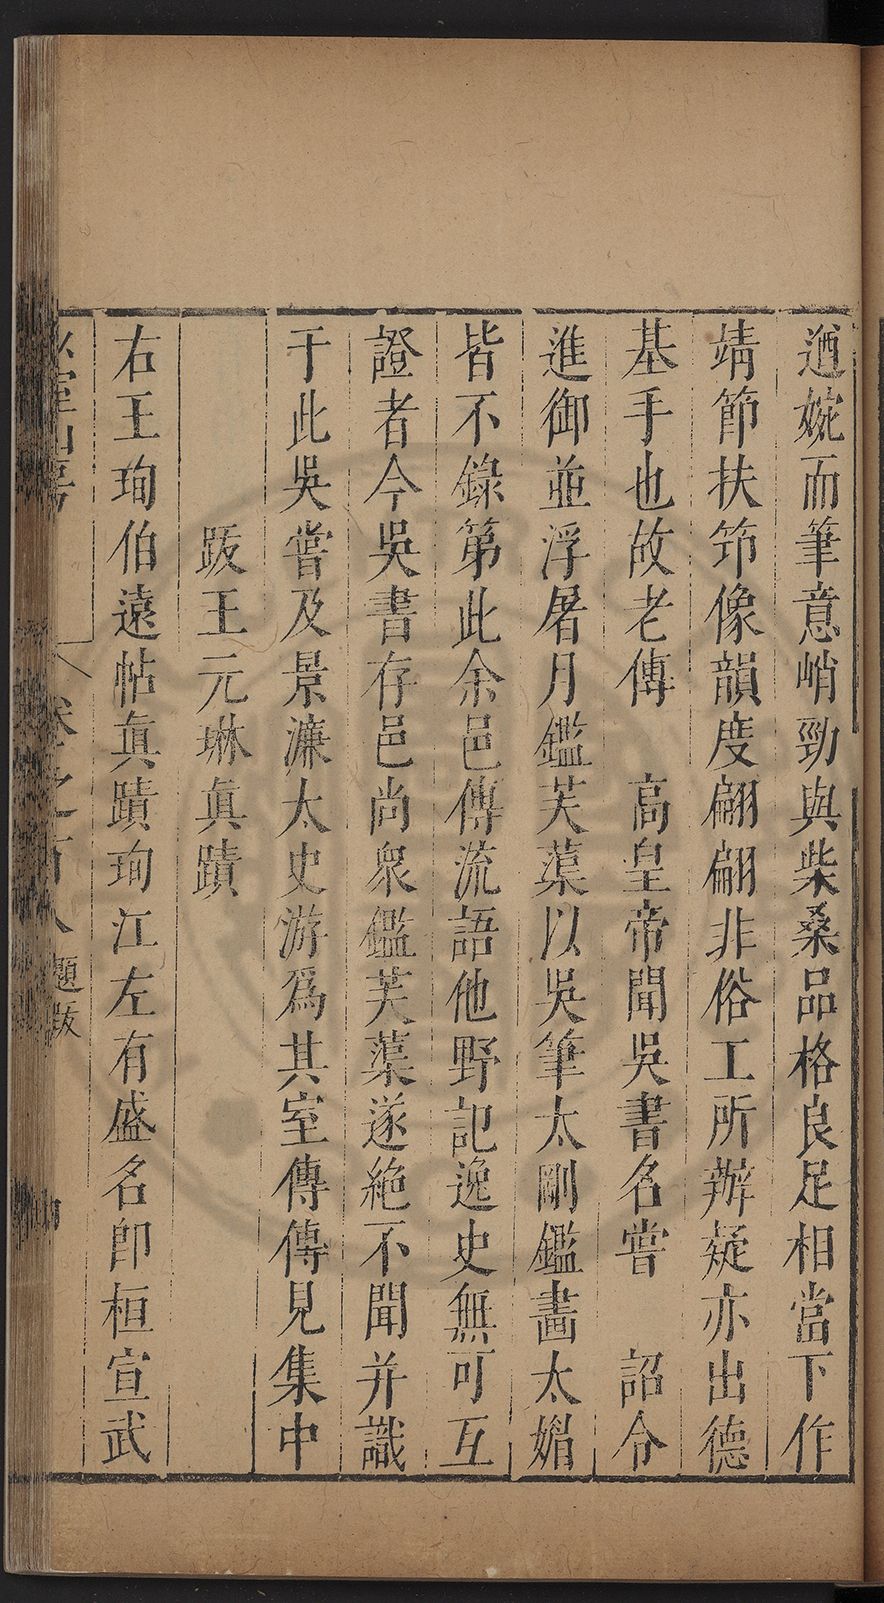 遒婉而筆意峭勁與柴桑品格良足相當下作
靖節扶笻像韻度翩翩非俗工所辦疑亦出德
基手也故老傳　高皇帝聞吳書名嘗　詔令
進御並浮屠月鑑芙蕖以吳筆太剛鑑畫太媚
皆不錄第此余邑傳流語他野記逸史無可互
證者今吳書存邑尚衆鑑芙蕖遂絕不聞并識
于此吳嘗及景濂太史游爲其室傳傳見集中
跋王元琳眞蹟
右王珣伯遠帖眞蹟珣江左有盛名卽桓宣武
山房
卷之百八 題跋